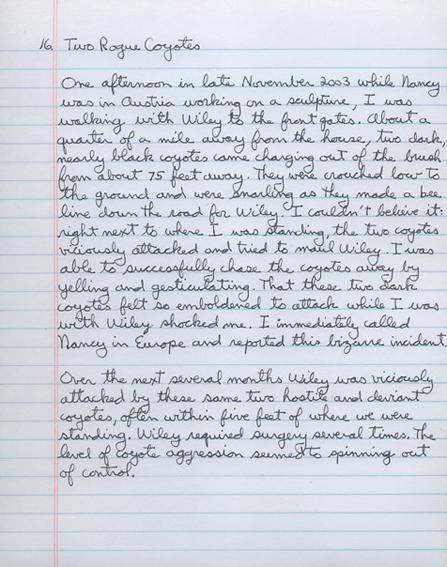 16. Two Rogue Coyotes
One afternoon in late November 2003 while Nancy
was in Austria working on a sculpture, I was
walking with Wiley to the front gates. About a
quarter of a mile away from the house, two dark,
nearly black coyotes came charging out of the brush
from about 75 feet away. They were crouched low to
the ground and were snarling as they made a bee
line down the road for Wiley. I couldn't believe it:
right next to where I was standing, the two coyotes
viciously attacked and tried to maul Wiley. I was
able to successfully chase the coyotes away by
yelling and gesticulating. That these two dark
coyotes felt so emboldened to attack while I was
with Wiley shocked me. I immediately called
Nancy in Europe and reported this bizarre incident
Over the next several months Wiley was viciously
attacked by these same two hostile and deviant
coyotes, often within five feet of where we were
standing. Wiley required surgery several times. The
level of coyote aggression seemed to spinning out
of control.